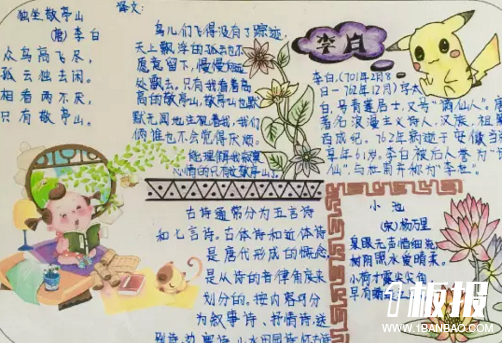 独坐敬亭山
(唐)李白
众鸟高飞尽，
孤云独去闲。
相看两不厌，
只有敬亭山。
译文：
鸟儿们飞得没有了踪迹，
天上飘浮的孤云也不
愿意留下，慢慢向远
处飘去。只有我看着高
高的敬亭山，敬亭山也默
默无闻地注视着我，我们
俩谁也不会觉得厌烦。
心情的只有这敬亭山。
李白
李白，(701年2月8
日—762年12月)字太
白，号青莲居士，又号“谪仙人”。唐
著名浪漫主义诗人，汉族，祖
西成纪，762年病逝于安徽当
享年61岁。李白被后人誉为“诗
仙”，与杜甫并称为“李杜”。
古诗通常分为五言诗
和七言诗。古体诗和近体诗
是唐代形成的概念，
是从诗的音律角度来
划分的。按内容可分
为叙事诗、抒情诗、送
别诗、边塞诗、山水田园诗、怀古诗
小池
(宋)杨万里
泉眼无声惜细流，
树阴照水爱晴柔。
小荷才露尖尖角，
早有蜻
1板报
WWW.1BANBAO.COM